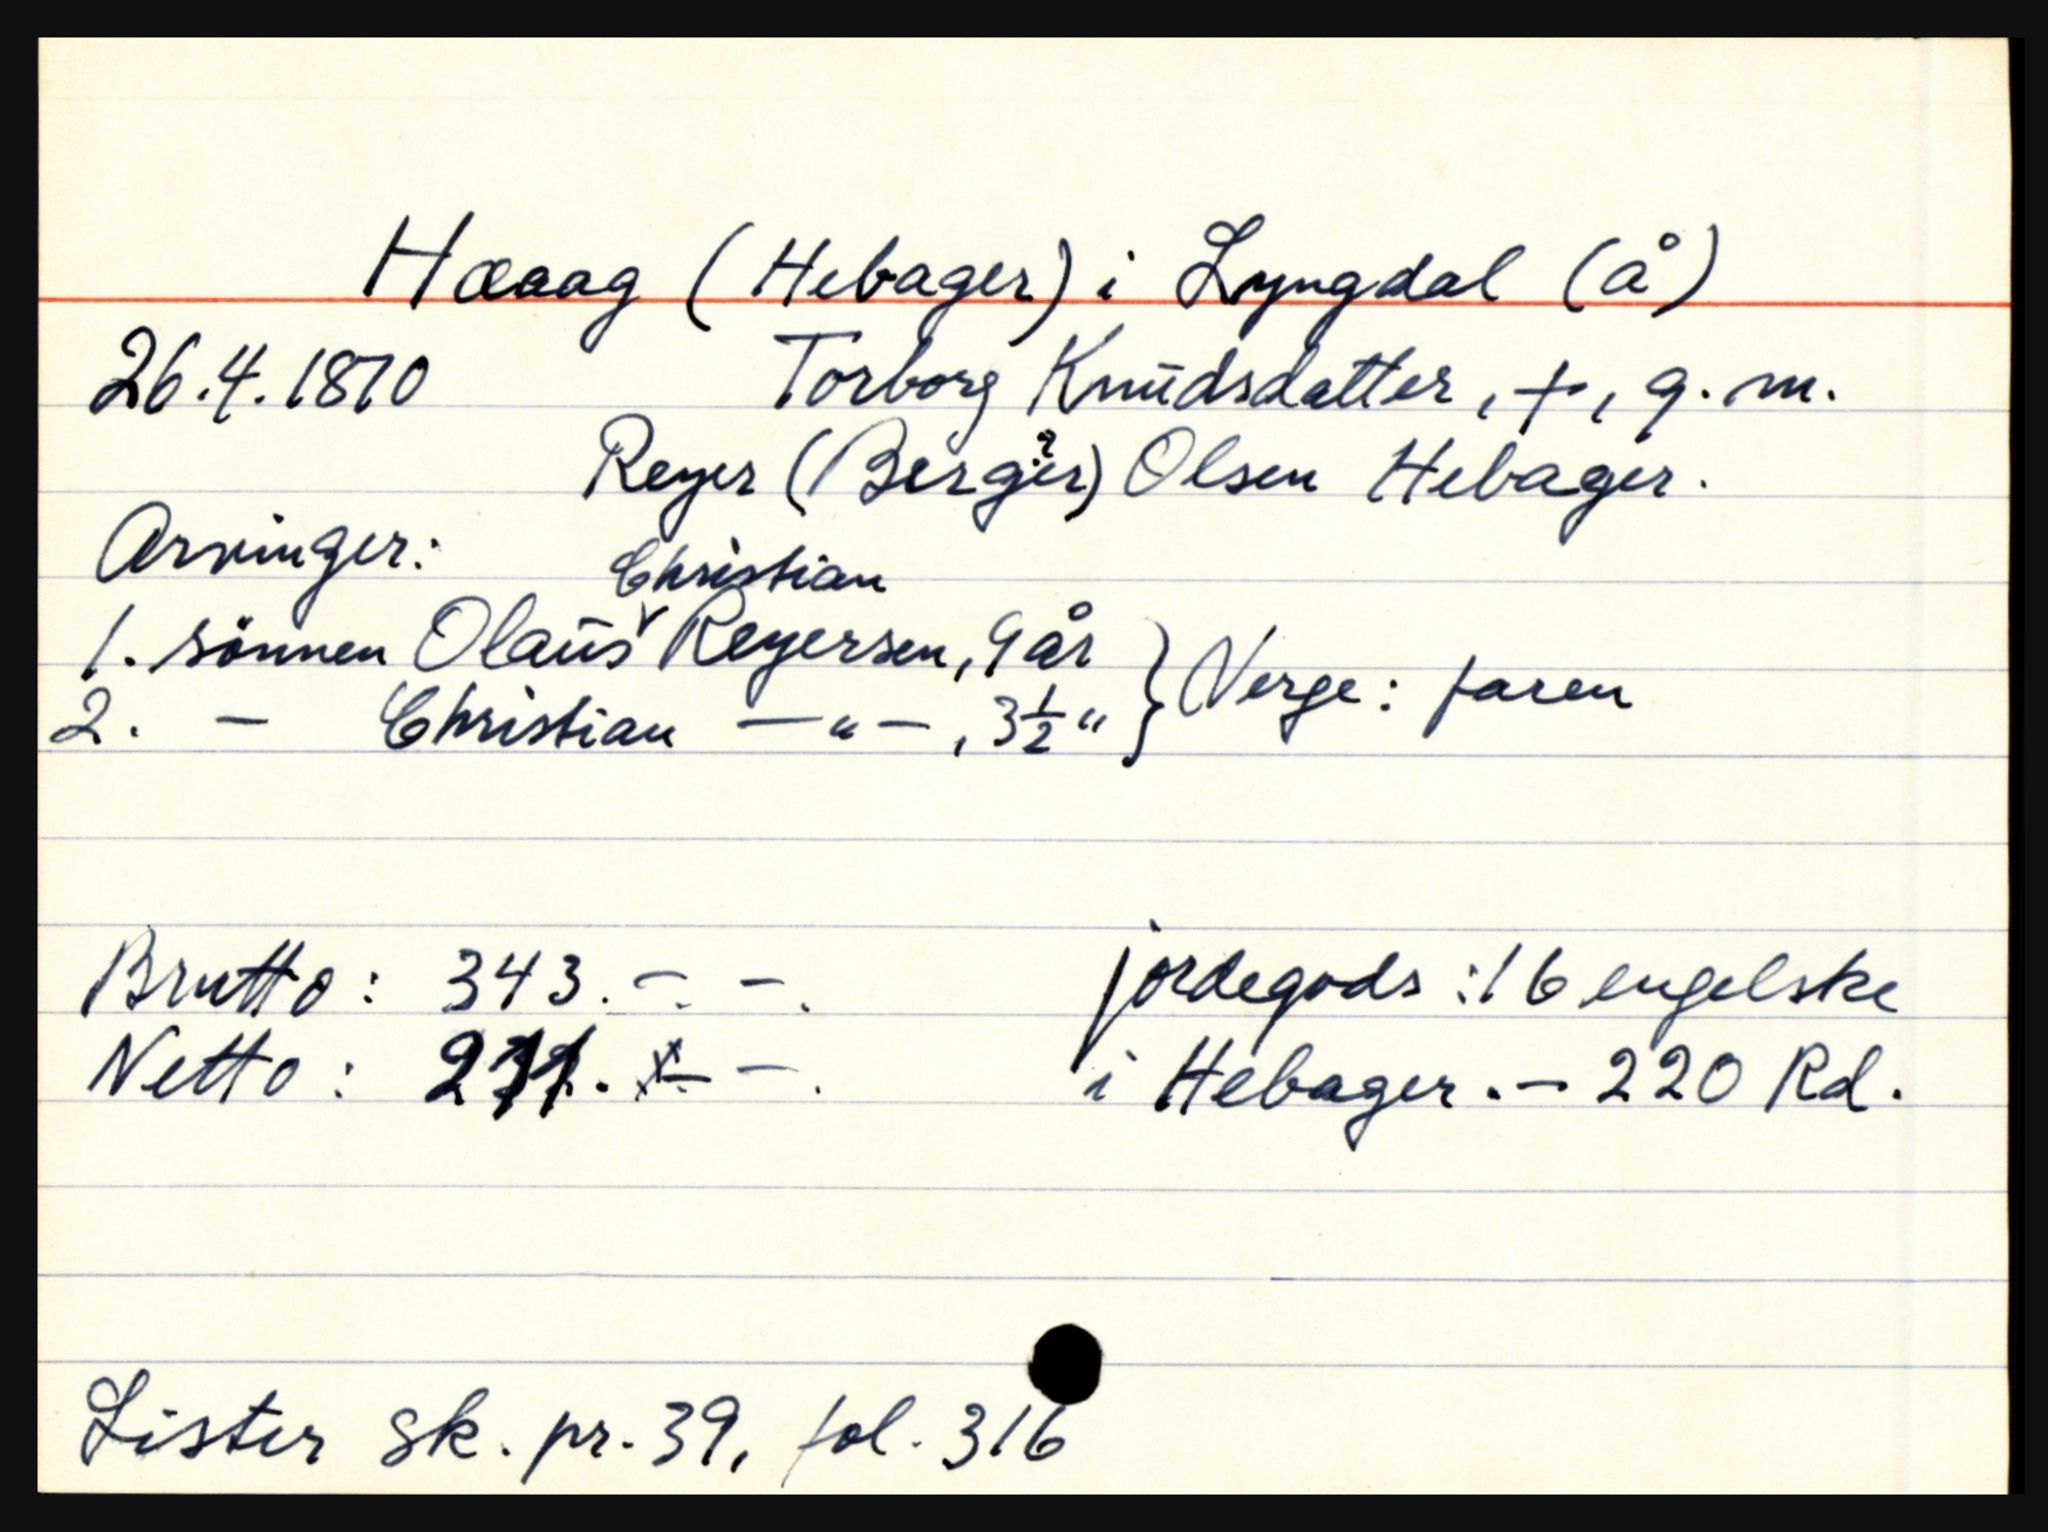 Haaag (Hebager) i Lyngdal (å)
26.4.1810 Torborg Knudsdatter, +, g. m.
Reyer (Berger?) Olsen Hebager.
Arvinger:
Christian
1. sönnen Olaus ˅ Reyersen, 9 år } Verge: faren
2. — Christian — " — , 3½ "
Brutto: 343. —. —. jordegods: 16 engelske
Netto: —. —. i Hebager. — 220 Rd.
Lister sk. pr. 39, fol. 316